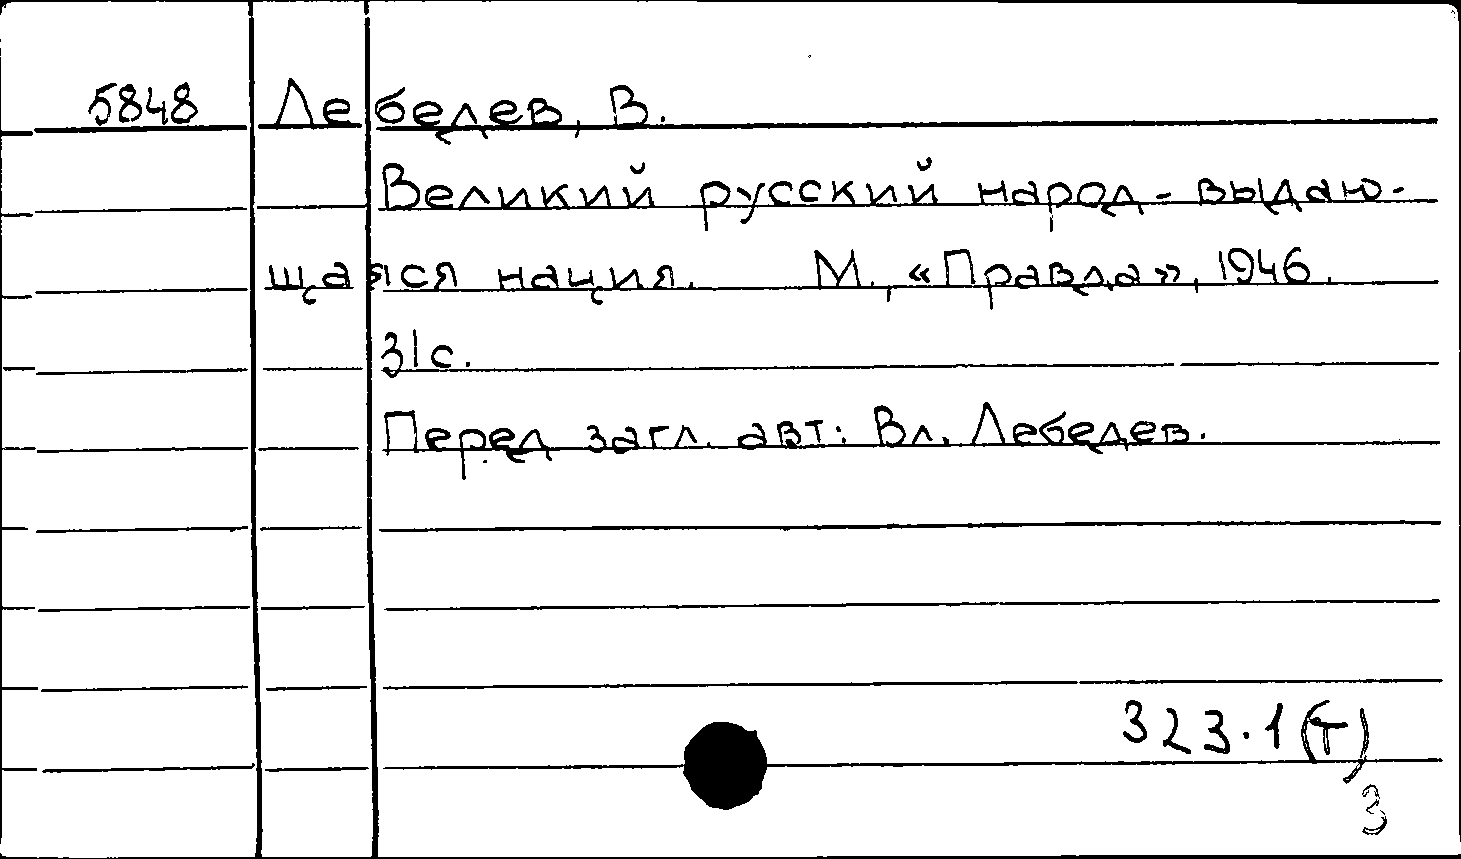 5848 Лебедев, В.
Великий русский народ - выдаю-
щаяся нация. М., «Правда», 1946.
31с.
Перед загл. авт: Вл. Лебедев.
323.1(Т)
3